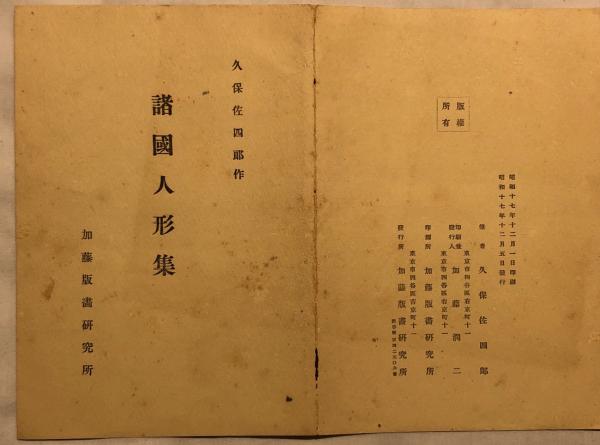 久保佐四郎作
諸國人形集
加藤版畫研究所
版權
所有
昭和十七年十二月一日印刷
昭和十七年十二月五日發行
作者 久保佐四郎
東京市四谷區右京町十一
印刷兼
發行人 加藤潤二
東京市四谷區右京町十一
印刷所 加藤版畫研究所
東京市四谷區右京町十一
發行所 加藤版畫研究所